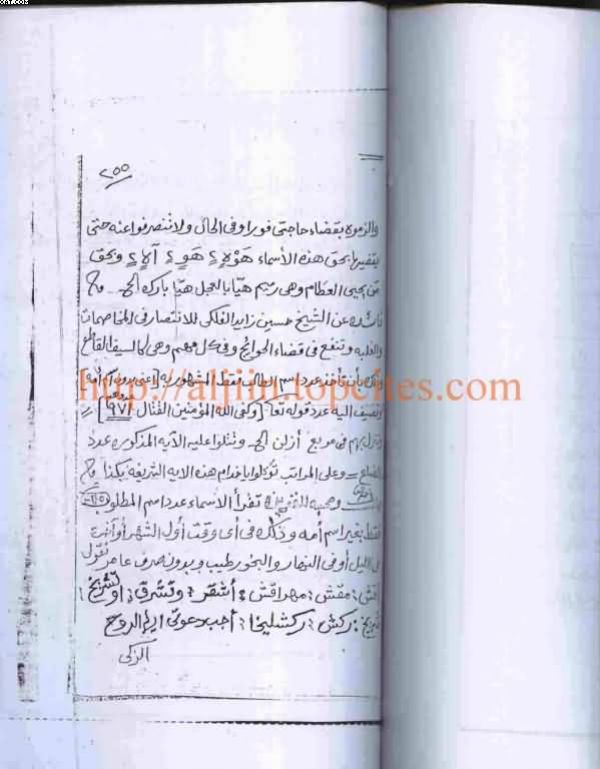 ٢٥٥
والزموه بقضاء حاجتي فورا وفى الحال ولا تنصرفوا عنه حتى
يقضيها بحق هذه الأسماء هَوْلاءٍ هَوٍ آلاءٍ وبحق
من يحيى العظام وهى رميم هيا يا العجل هيا بارك الخ
فائده عن الشيخ حسين زايد الفلكى للانتصار فى المخاصمات
والغلبه وتنفع فى قضاء الحوائج وفى كل مهم وهى كالسيف القاطع
وذلك بأن تأخذ عدد اسم الطالب فقط المشهور به [اعنى بدون أم أمه]
وتضيف اليه عدد قوله تعالى [وكفى الله المؤمنين القتال ٩٧١]
فى مربع أزلن الخ وتتلوا عليه الآيه المذكوره عدد
الضلع وعلى المراتب توكلوا يا خدام هذه الايه الشريفه بكذا
تقرأ الأسماء عدد اسم المطلوب
فقط بغير اسم أمه وذلك فى أى وقت أول الشهر أو آخره
فى الليل أو فى النهار والبخور طيب وبدون صرف عامر تقول
مقش مهراقش أشقر وتشرق او تشريخ
ركش ركشليخا أجب دعوتى ايها الروح
الزكى
http://aljiin.topcites.com